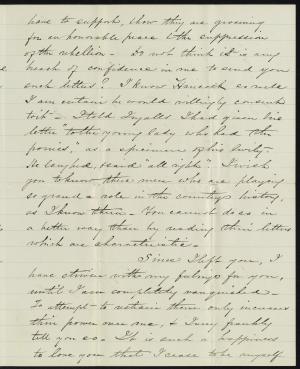 have to support, show they are grooming
for an honorable peace & the suppression
of the rebellion - Do not think it is any
breach of confidence in me to send you
such letters? I know Hancock so well
I am certain he would willingly consent
to it - I told Ingalls I had given his
letter to the young lady who had "the
ponies" as a specimen of his
He laughed, & said "all right" I wish
you to know these men who are playing
so grand a role in the country's history,
as I know them - You cannot do so in
a better way than by reading their letters
which are characteristic -
Since I left you, I
have striven with my feelings for you,
until I am completely vanquished -
To attempt to restrain them only increases
their power over me, & I may frankly
tell you so. It is such a happiness
to love you that I cease to be myself